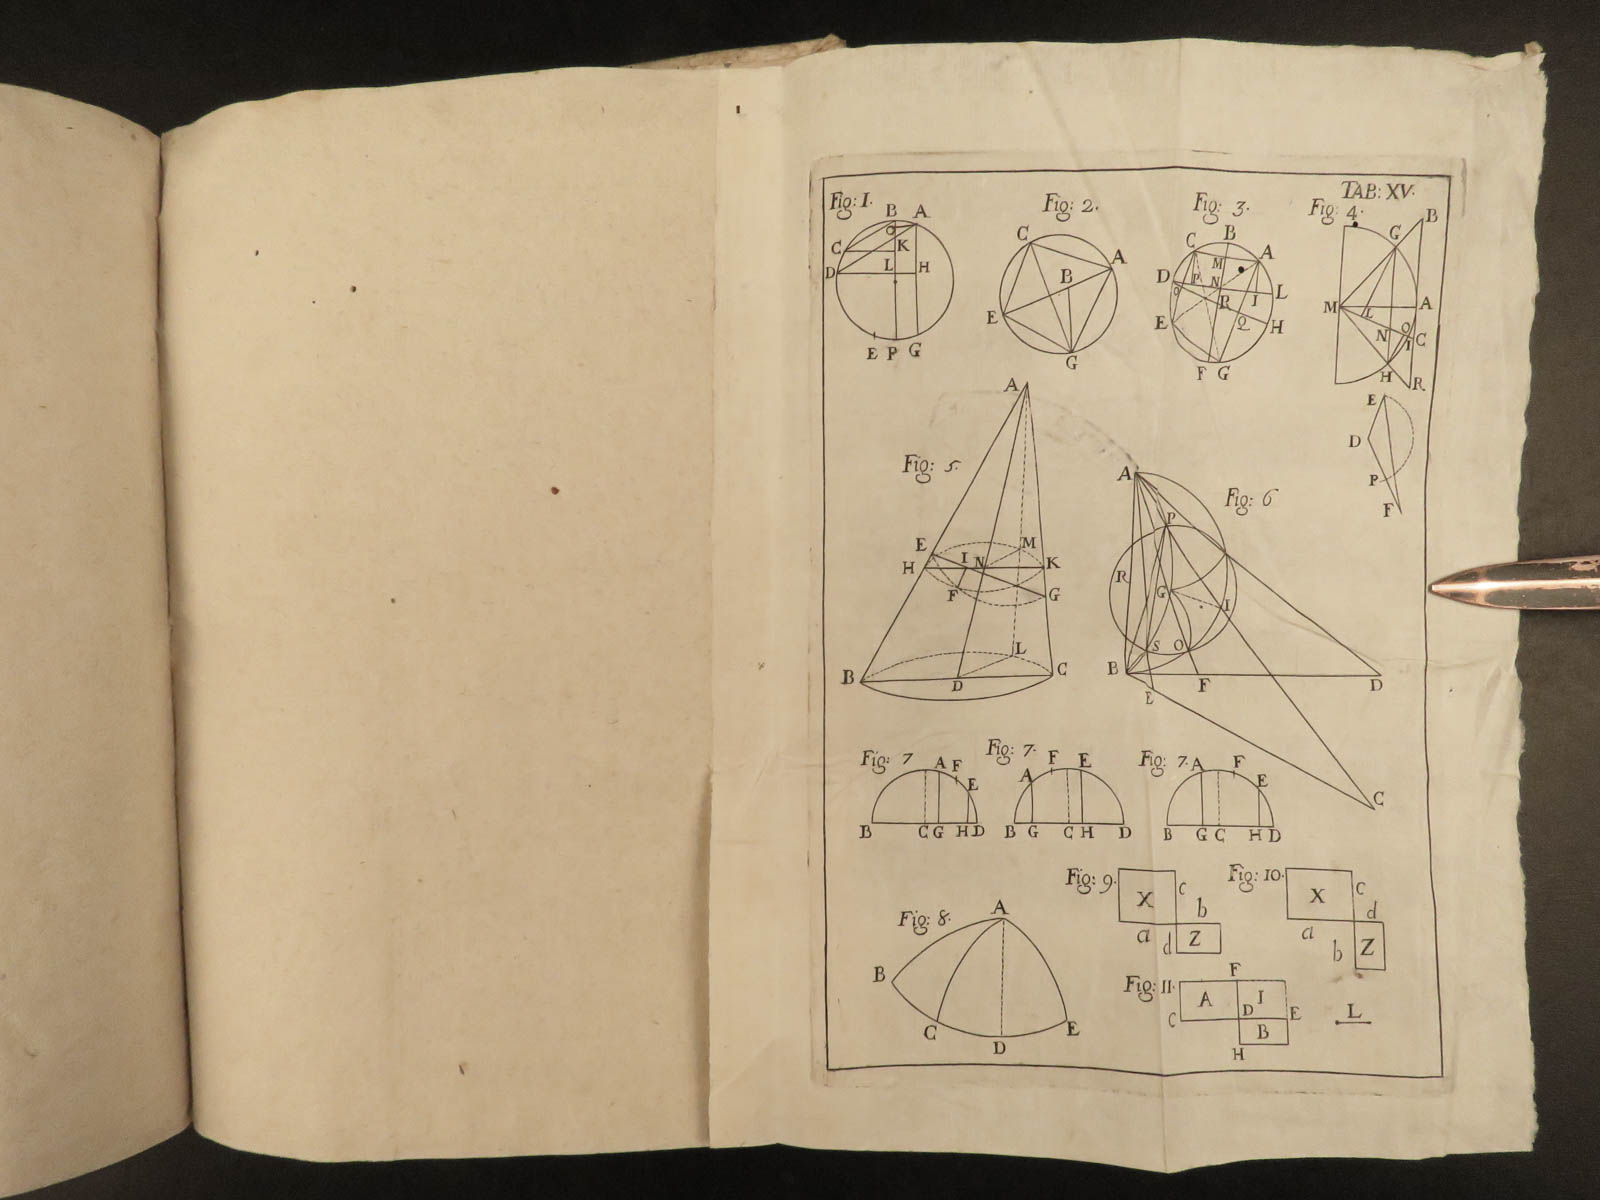 TAB: XV.
Fig: I.
B A
O
C K
D L H
E P G
Fig: 2.
C A
B
E
G
Fig: 3.
C B A
M
D P N L
O R I
E Q H
F G
Fig: 4.
B
G
M L A
N O C
I
H R
E
D
P
F
Fig: 5.
A
E M
H I N K
F G
L
B D C
Fig: 6
A
P
R G I
S O
B E F D
C
Fig: 7
A F
E
B C G H D
Fig: 7.
A F E
B G C H D
Fig: 7.
A F
E
B G C H D
Fig: 8.
A
B
C D E
Fig: 9.
X C
b
a d Z
Fig: 10.
X C
d
a b Z
Fig: 11.
F
A I
C D E
B
H
L